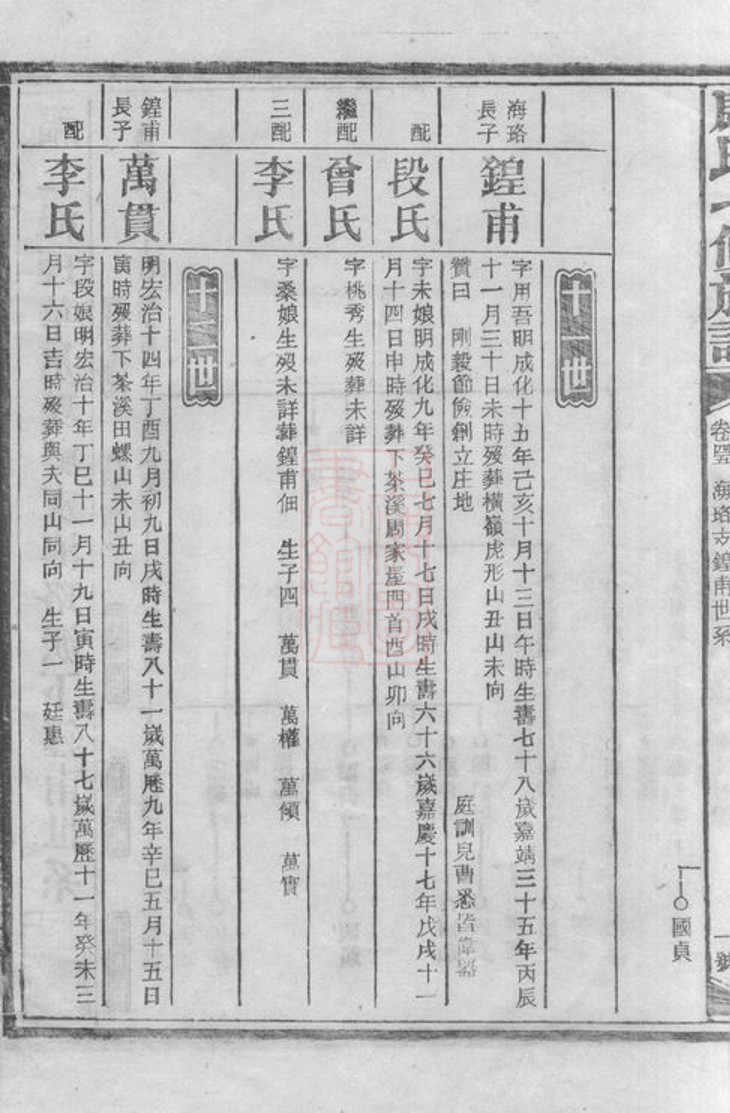 卷 海珞支鍠甫世系
一
國貞
十一世
海珞
長子
鍠甫
字用吾明成化十五年己亥十月十三日午時生壽七十八歲嘉靖三十五年丙辰
十一月三十日未時歿葬橫嶺虎形山丑山未向
贊曰 剛毅節儉創立庄地 庭訓兒曹悉皆偉器
配
段氏
字未娘明成化九年癸巳七月十七日戌時生壽六十六歲嘉慶十七年戊戌十一
月十四日申時歿葬下茶溪周家屋門首酉山卯向
繼配
曾氏
字桃秀生歿葬未詳
三配
李氏
字桑娘生歿未詳葬鍠甫佃 生子四 萬貫 萬權 萬傾 萬實
十二世
鍠甫
長子
萬貫
明宏治十四年丁酉九月初九日戌時生壽八十一歲萬歷九年辛巳五月十五日
寅時歿葬下茶溪田螺山未山丑向
配
李氏
字段娘明宏治十年丁巳十一月十九日寅時生壽八十七歲萬歷十一年癸未三
月十六日吉時歿葬與夫同山同向 生子一 廷惠